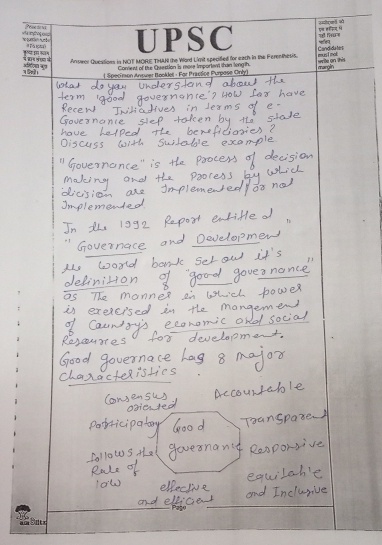 UPSC
Answer Questions in NOT MORE THAN the Word Limit specified for each in the Parenthesis.
Content of the Question is more important than length.
( Specimen Answer Booklet - For Practice Purpose Only)
Candidates
must not
write on this
margin
What do you understand about the
term 'good governance'? How far have
Recent Initiatives in terms of e-
Governance step taken by the state
have helped the beneficiaries?
Discuss with Suitable example
"Governance" is the process of decision
making and the process by which
dicision are Implemented or not
Implemented
In the 1992 Report entitled
"Governace and Development"
the World bank set out it's
definition of "good governance"
as The manner in which power
is exercised in the mangement
of Country's economic and social
Resources for development.
Good governace has 8 major
characteristics.
Consensus
oriented
Accountable
Participatory
Good
governance
Transparent
follows the
Rule of
law
Responsive
effective
and efficient
equitable
and Inclusive
Page